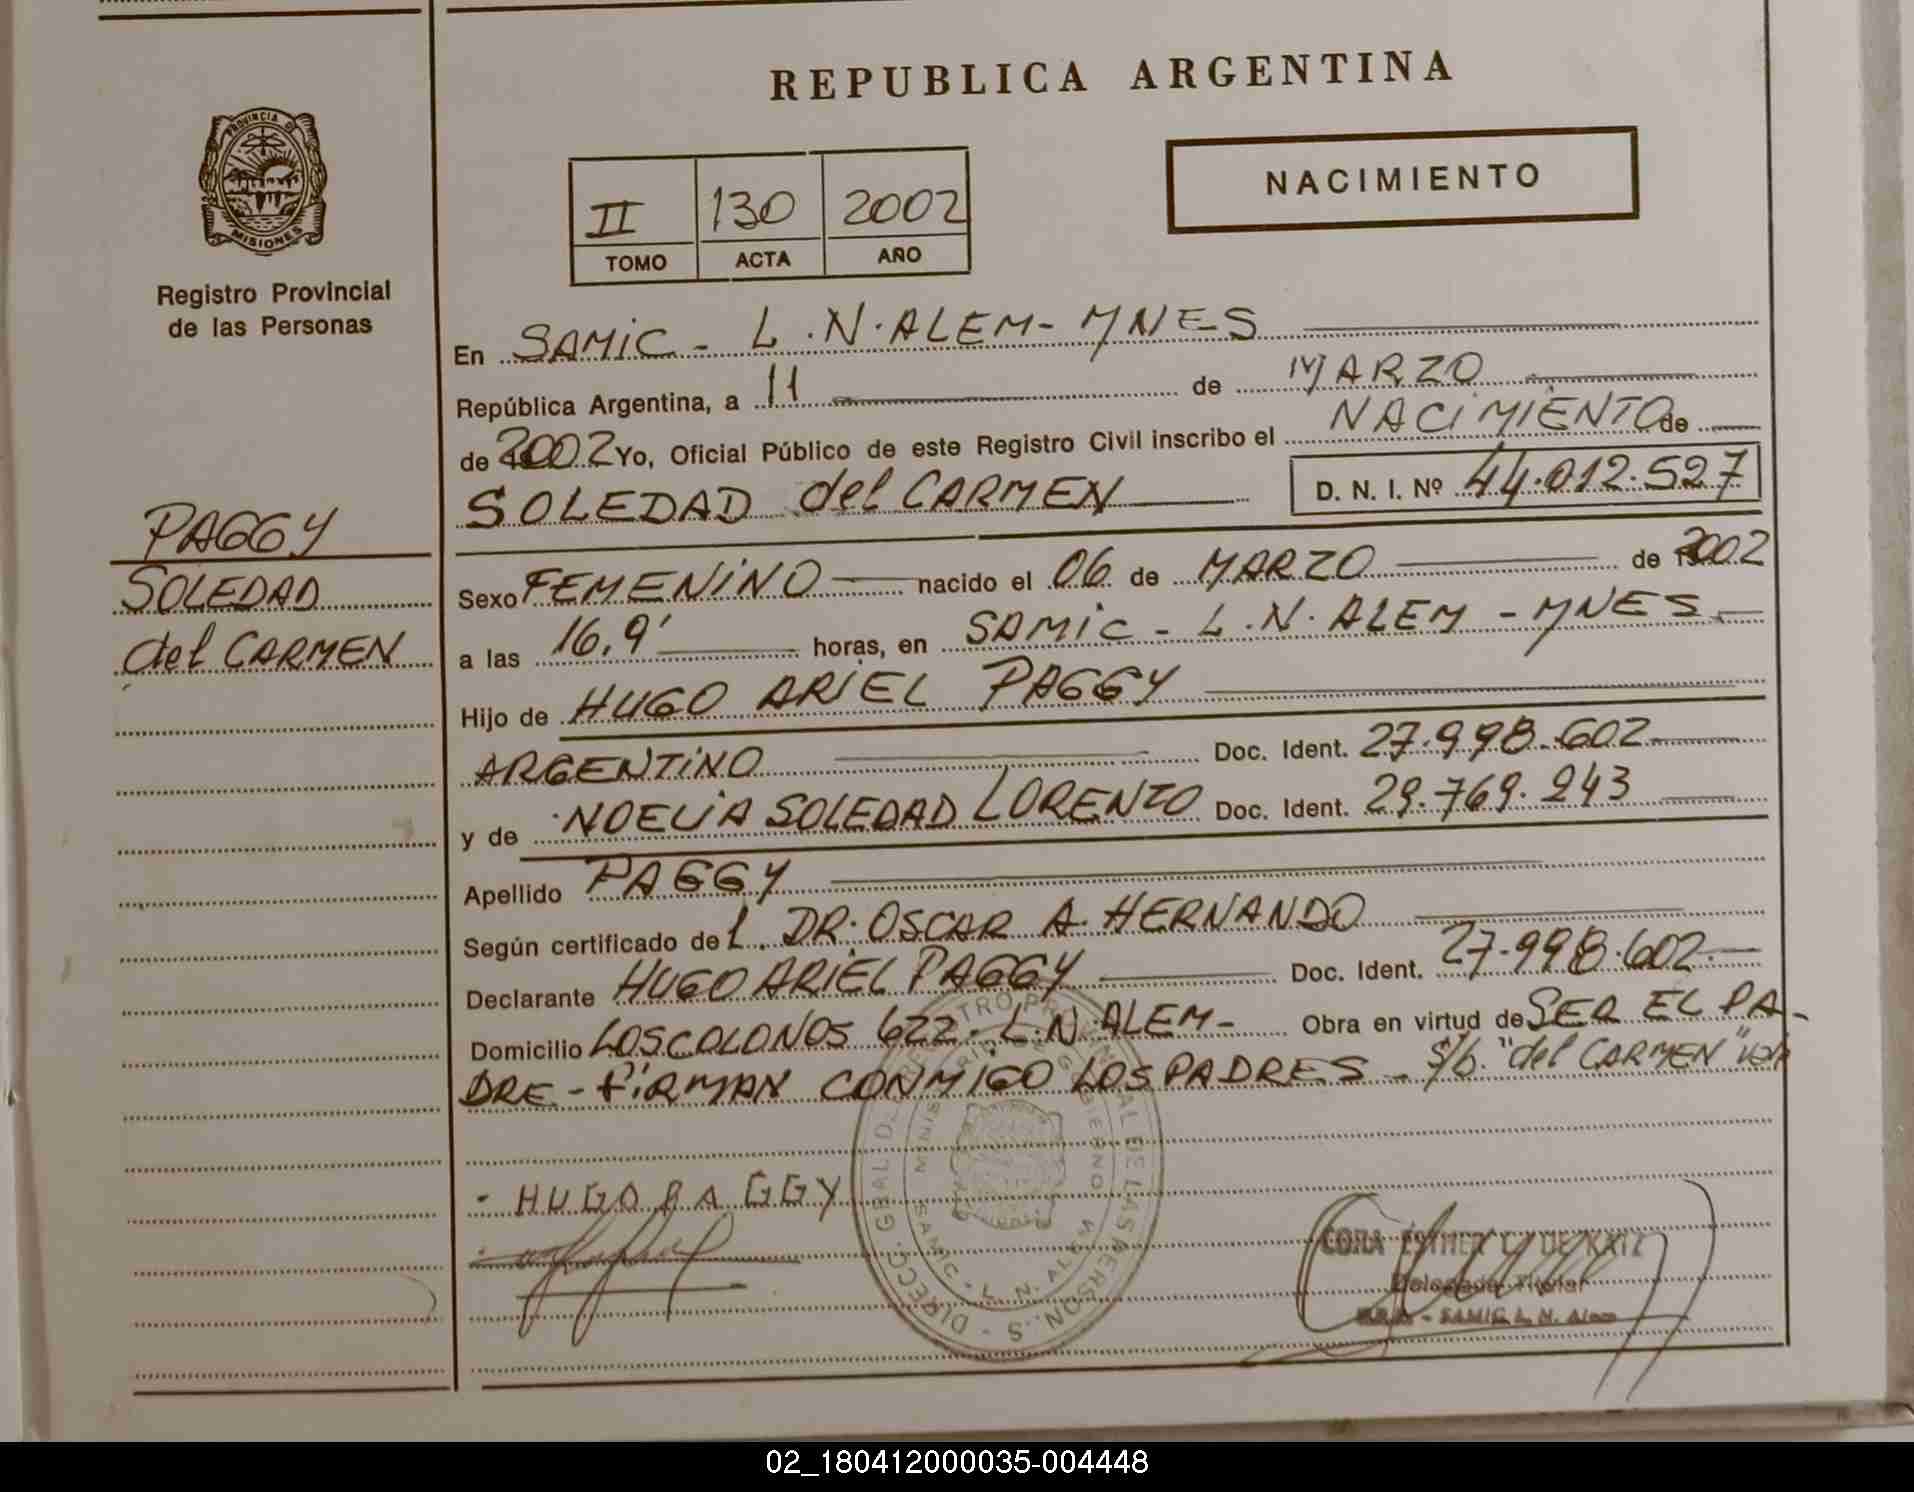 REPUBLICA ARGENTINA
PROVINCIA DE
MISIONES
Registro Provincial
de las Personas
II 130 2002
TOMO ACTA AÑO
NACIMIENTO
En SAMIC - L.N. ALEM - MNES
República Argentina, a 11 de MARZO
de 2002 Yo, Oficial Público de este Registro Civil inscribo el NACIMIENTO de
SOLEDAD del CARMEN D. N. I. Nº 44.012.527
PAGGY
SOLEDAD
del CARMEN
Sexo FEMENINO nacido el 06 de MARZO de 2002
a las 16,9' horas, en SAMIC - L.N. ALEM - MNES
Hijo de HUGO ARIEL PAGGY
ARGENTINO Doc. Ident. 27.998.602
y de NOELIA SOLEDAD LORENZO Doc. Ident. 29.769.243
Apellido PAGGY
Según certificado de l. DR. OSCAR A. HERNANDO
Declarante HUGO ARIEL PAGGY Doc. Ident. 27.998.602
Domicilio LOS COLONOS 622 - L.N. ALEM - Obra en virtud de SER EL PA-
DRE - FIRMAN CONMIGO LOS PADRES - S/b. "del CARMEN"
HUGO PAGGY
CORA ESTHER DE KATZ
Delegada Titular
SAMIC L. N. Alem
02_180412000035-004448